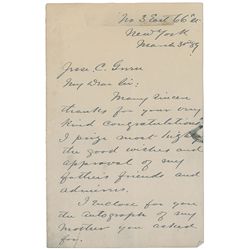 No 3 East 66th St.
New York
March 30 / 89
Jesse C. Green
My Dear Sir:
Many sincere
thanks for your very
kind congratulations
I prize most high
the good wishes and
approval of my
father's friends and
admirers.
I enclose for you
the autograph of my
Mother you asked
for.